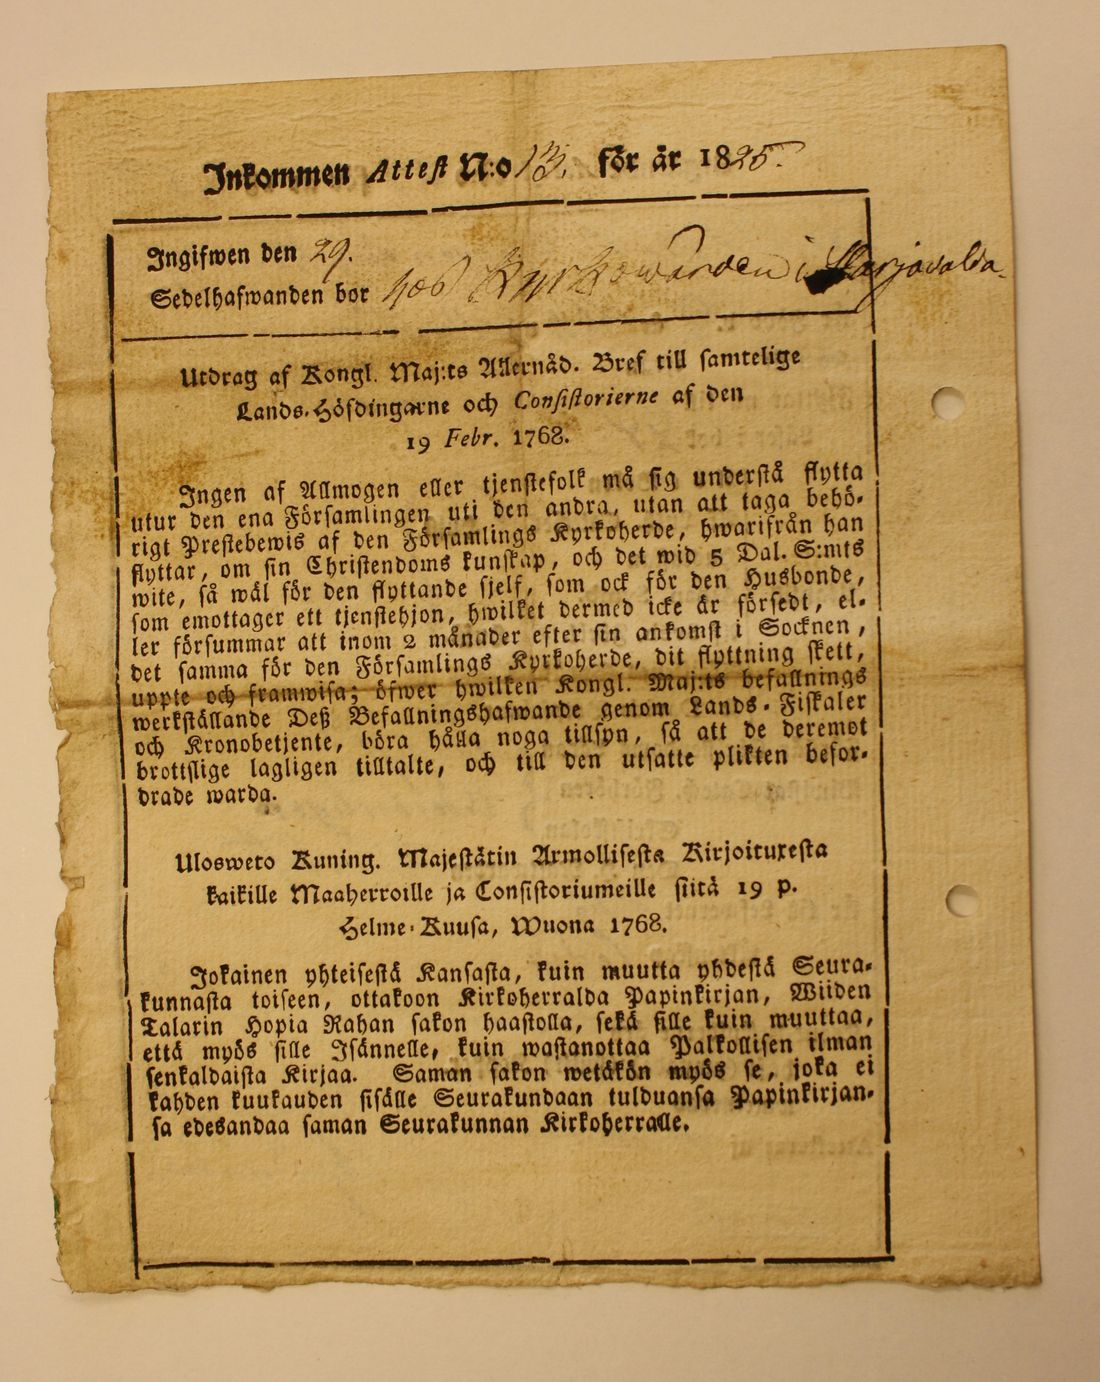 Inkommen Attest N:o 13. för år 1825.
Ingifwen den 29.
Sedelhafwanden bor hos Kyrkowärden i
Utdrag af Kongl. Maj:ts Allernåd. Bref till samtelige
Lands-Höfdingarne och Consistorierne af den
19 Febr. 1768.
Ingen af Allmogen eller tjenstefolk må sig understå flytta
utur den ena Församlingen uti den andra, utan att taga behö-
rigt Prestebewis af den Församlings Kyrkoherde, hwarifrån han
flyttar, om sin Christendoms kunskap, och det wid 5 Dal. S:mts
wite, så wäl för den flyttande sjelf, som ock för den Husbonde,
som emottager ett tjenstehjon, hwilket dermed icke är försedt, el-
ler försummar att inom 2 månader efter sin ankomst i Socknen,
det samma för den Församlings Kyrkoherde, dit flyttning skett,
uppte och framwisa; öfwer hwilken Kongl. Maj:ts befallnings
werkställande Deß Befallningshafwande genom Lands-Fiskaler
och Kronobetjente, böra hålla noga tillsyn, så att de deremot
brottslige lagligen tilltalte, och till den utsatte plikten befor-
drade warda.
Ulosweto Kuning. Majestätin Armollisesta Kirjoituxesta
kaikille Maaherroille ja Consistoriumeille siitä 19 p.
Helme-Kuusa, Wuona 1768.
Jokainen yhteisestä Kansasta, kuin muutta yhdestä Seura-
kunnasta toiseen, ottakoon Kirkoherralda Papinkirjan, Wiiden
Talarin Hopia Rahan sakon haastolla, sekä sille kuin muuttaa,
että myös sille Isännelle, kuin wastanottaa Palkollisen ilman
senkaldaista Kirjaa. Saman sakon wetäkön myös se, joka ei
kahden kuukauden sisälle Seurakundaan tulduansa Papinkirjan-
sa edesandaa saman Seurakunnan Kirkoherralle.